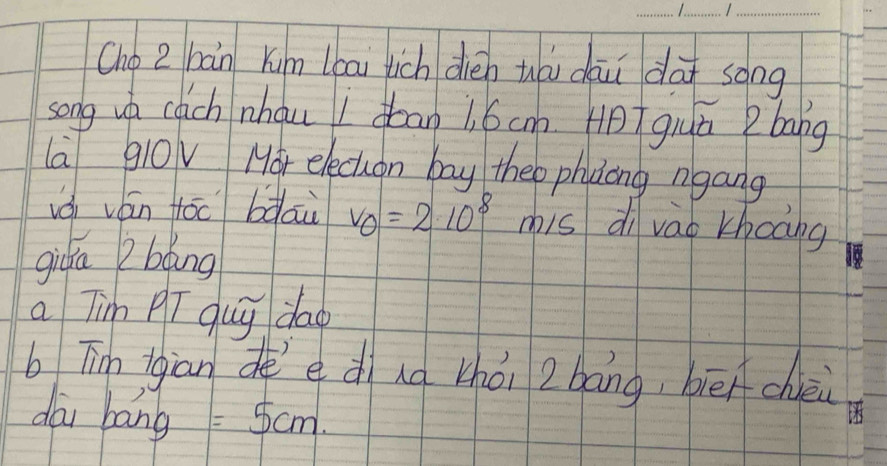 Cho 2 bản kim loại tích điện trái dấu đặt song
song và cách nhau 1 đoạn 1,6 cm. HĐT giữa 2 bảng
là 910V Một electron bay theo phương ngang
với vân tốc bđầu v0 = 2.10⁸ m/s đi vào khoảng
giữa 2 bảng
a Tìm PT quỹ đạo
b Tìm tgian để e đi ra khỏi 2 bảng, biết chiều
dài bảng = 5cm.